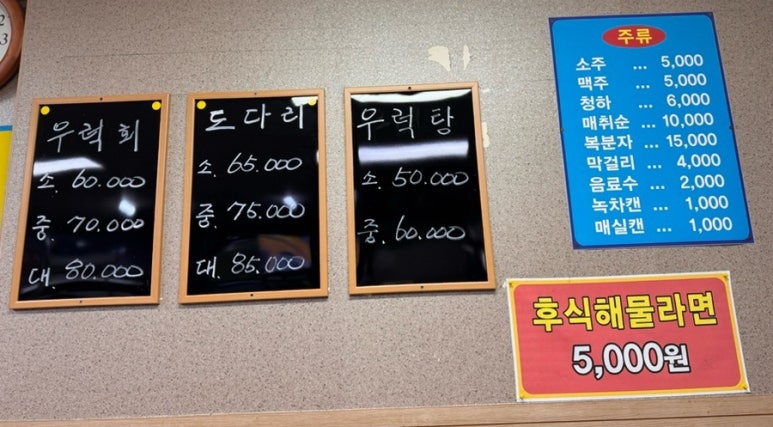 우럭회
소. 60.000
중. 70.000
대. 80.000
도다리
소. 65.000
중. 75.000
대. 85.000
우럭탕
소. 50.000
중. 60.000
주류
소주 ... 5,000
맥주 ... 5,000
청하 ... 6,000
매취순 ... 10,000
복분자 ... 15,000
막걸리 ... 4,000
음료수 ... 2,000
녹차캔 ... 1,000
매실캔 ... 1,000
후식해물라면
5,000원